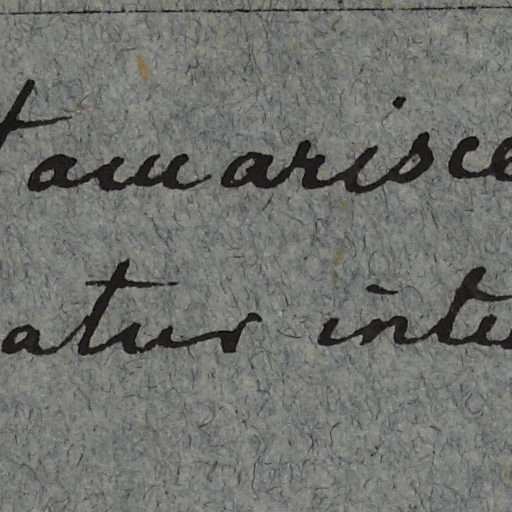 tamarisce
atur inte